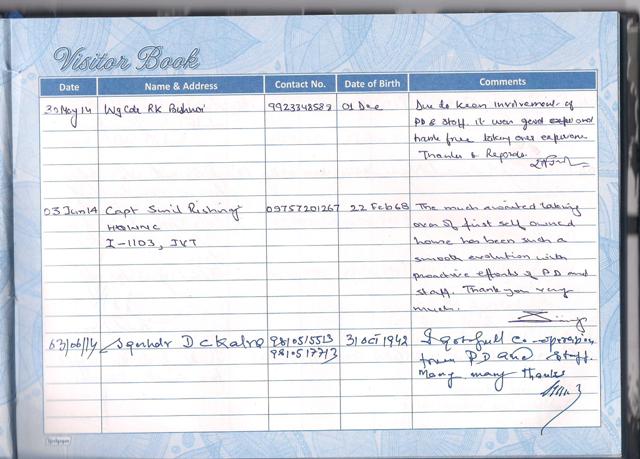 Visitor Book
Date Name & Address Contact No. Date of Birth Comments
30 May 14 Wg Cdr RK Bishnoi 9923348588 01 Dec Due to keen involvement of
PD & Staff it was good exper and
free taking over experience
Thanks & Regards.
03 Jun 14 Capt Sunil 09757201267 22 Feb 68 The much awaited taking
HQWNC over of first self owned
I-1103, JVT home has been such a
smooth evolution with
proactive efforts of PD and
staff. Thank you very
much.
03/06/14 Sqn Ldr D C Kalra 9810515513 31 Oct 1942 I got full co-operation
9810517713 from PD and staff.
Many many thanks